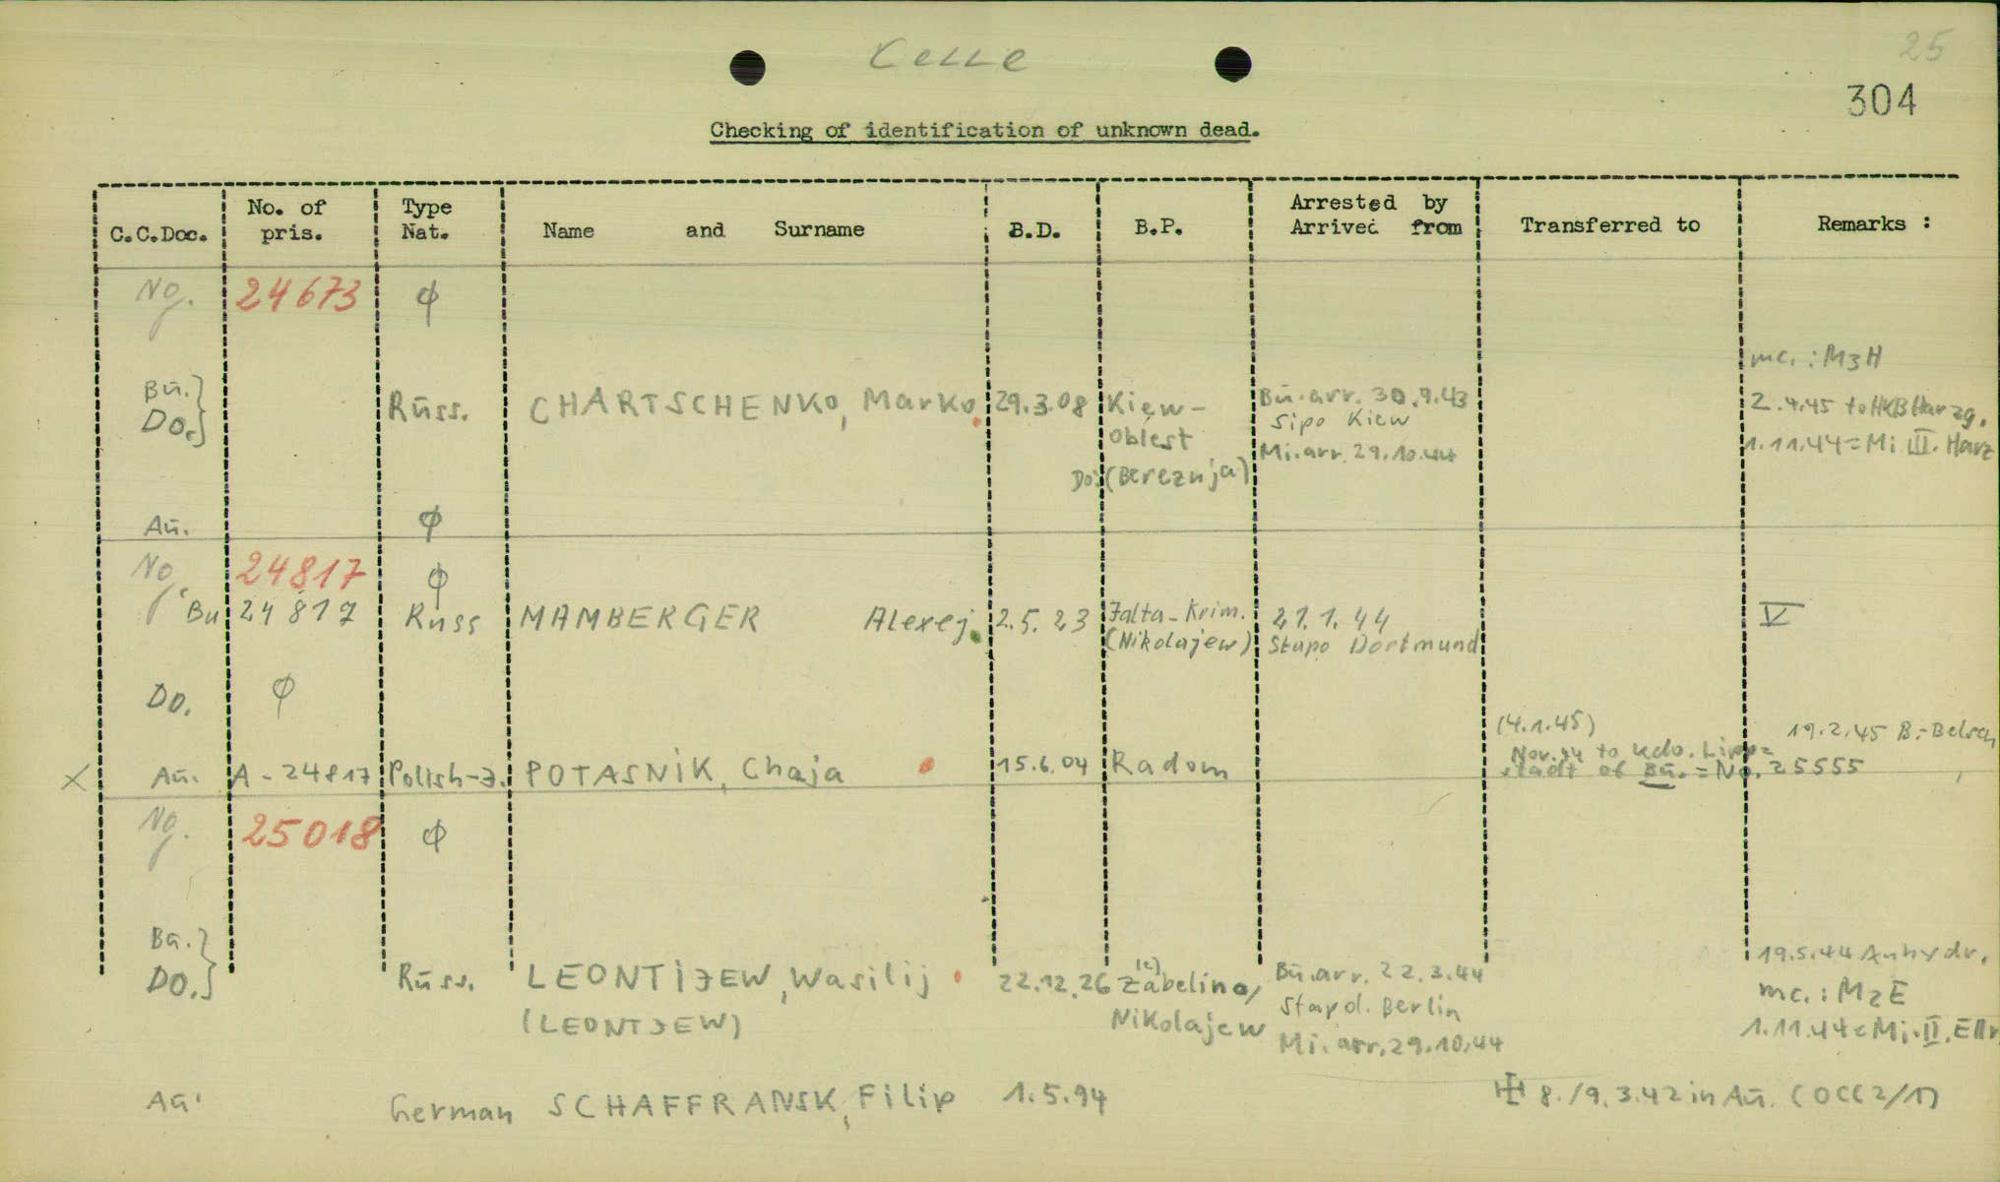 Celle
25
304
Checking of identification of unknown dead.
C.C.Doc. No. of pris. Type Nat. Name and Surname B.D. B.P. Arrested by Arrived from Transferred to Remarks :
24673 φ
mc. : M3H
Bu. Do. Russ. CHARTSCHENKO, Marko 29.3.08 Kiew- Bu. arr. 30.9.43 2.4.45 to HKB Harzg.
Oblest Sipo Kiew 1.11.44 = Mi III. Harz
Do: (Bereznja) Mi. arr. 29.10.44
Au. φ
24817 φ
Bu 24817 Russ MAMBERGER Alexej 2.5.23 Jalta-Krim. 21.1.44 V
(Nikolajew) Stapo Dortmund
Do. φ
(4.1.45) 19.2.45 B.-Belsen
Nov.44 to Kdo. Lipp=
X Au. A-24817 Polish-J. POTASNIK, Chaja 15.6.04 Radom stadt of Bu. = No. 25555
25018 φ
Bu. Do. Russ. LEONTIJEW, Wasilij 22.12.26 Zabelino, Bu. arr. 22.3.44 19.5.44 Anhydr.
(LEONTJEW) Nikolajew Stapol. Berlin mc. : M2E
Mi. arr. 29.10.44 1.11.44 = Mi. II. Ellr
Au. German SCHAFFRANSK, Filip 1.5.94 8./9.3.42 in Au. (OCC 2/1)